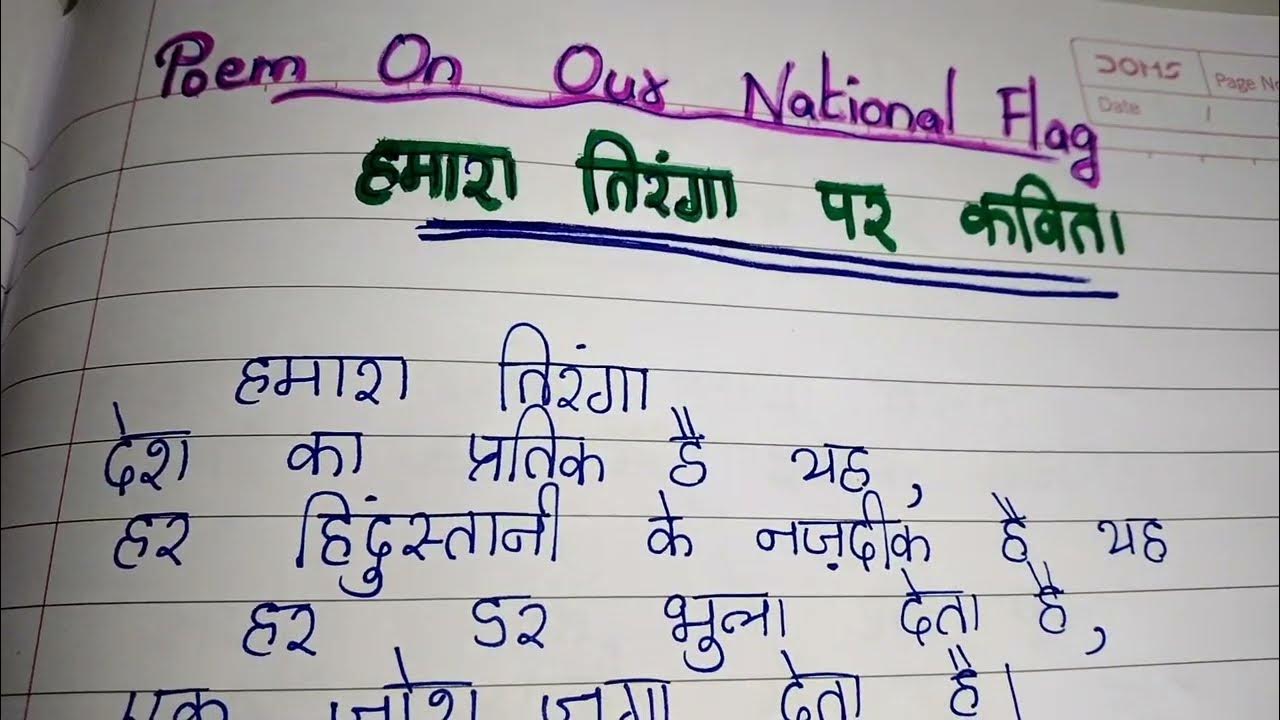 Poem On Our National Flag
DOMS
Page No
Date
हमारा तिरंगा पर कविता
हमारा तिरंगा
देश का प्रतिक है यह,
हर हिंदुस्तानी के नज़दीक है यह
हर डर भुला देता है,
एक जोश जगा देता है।